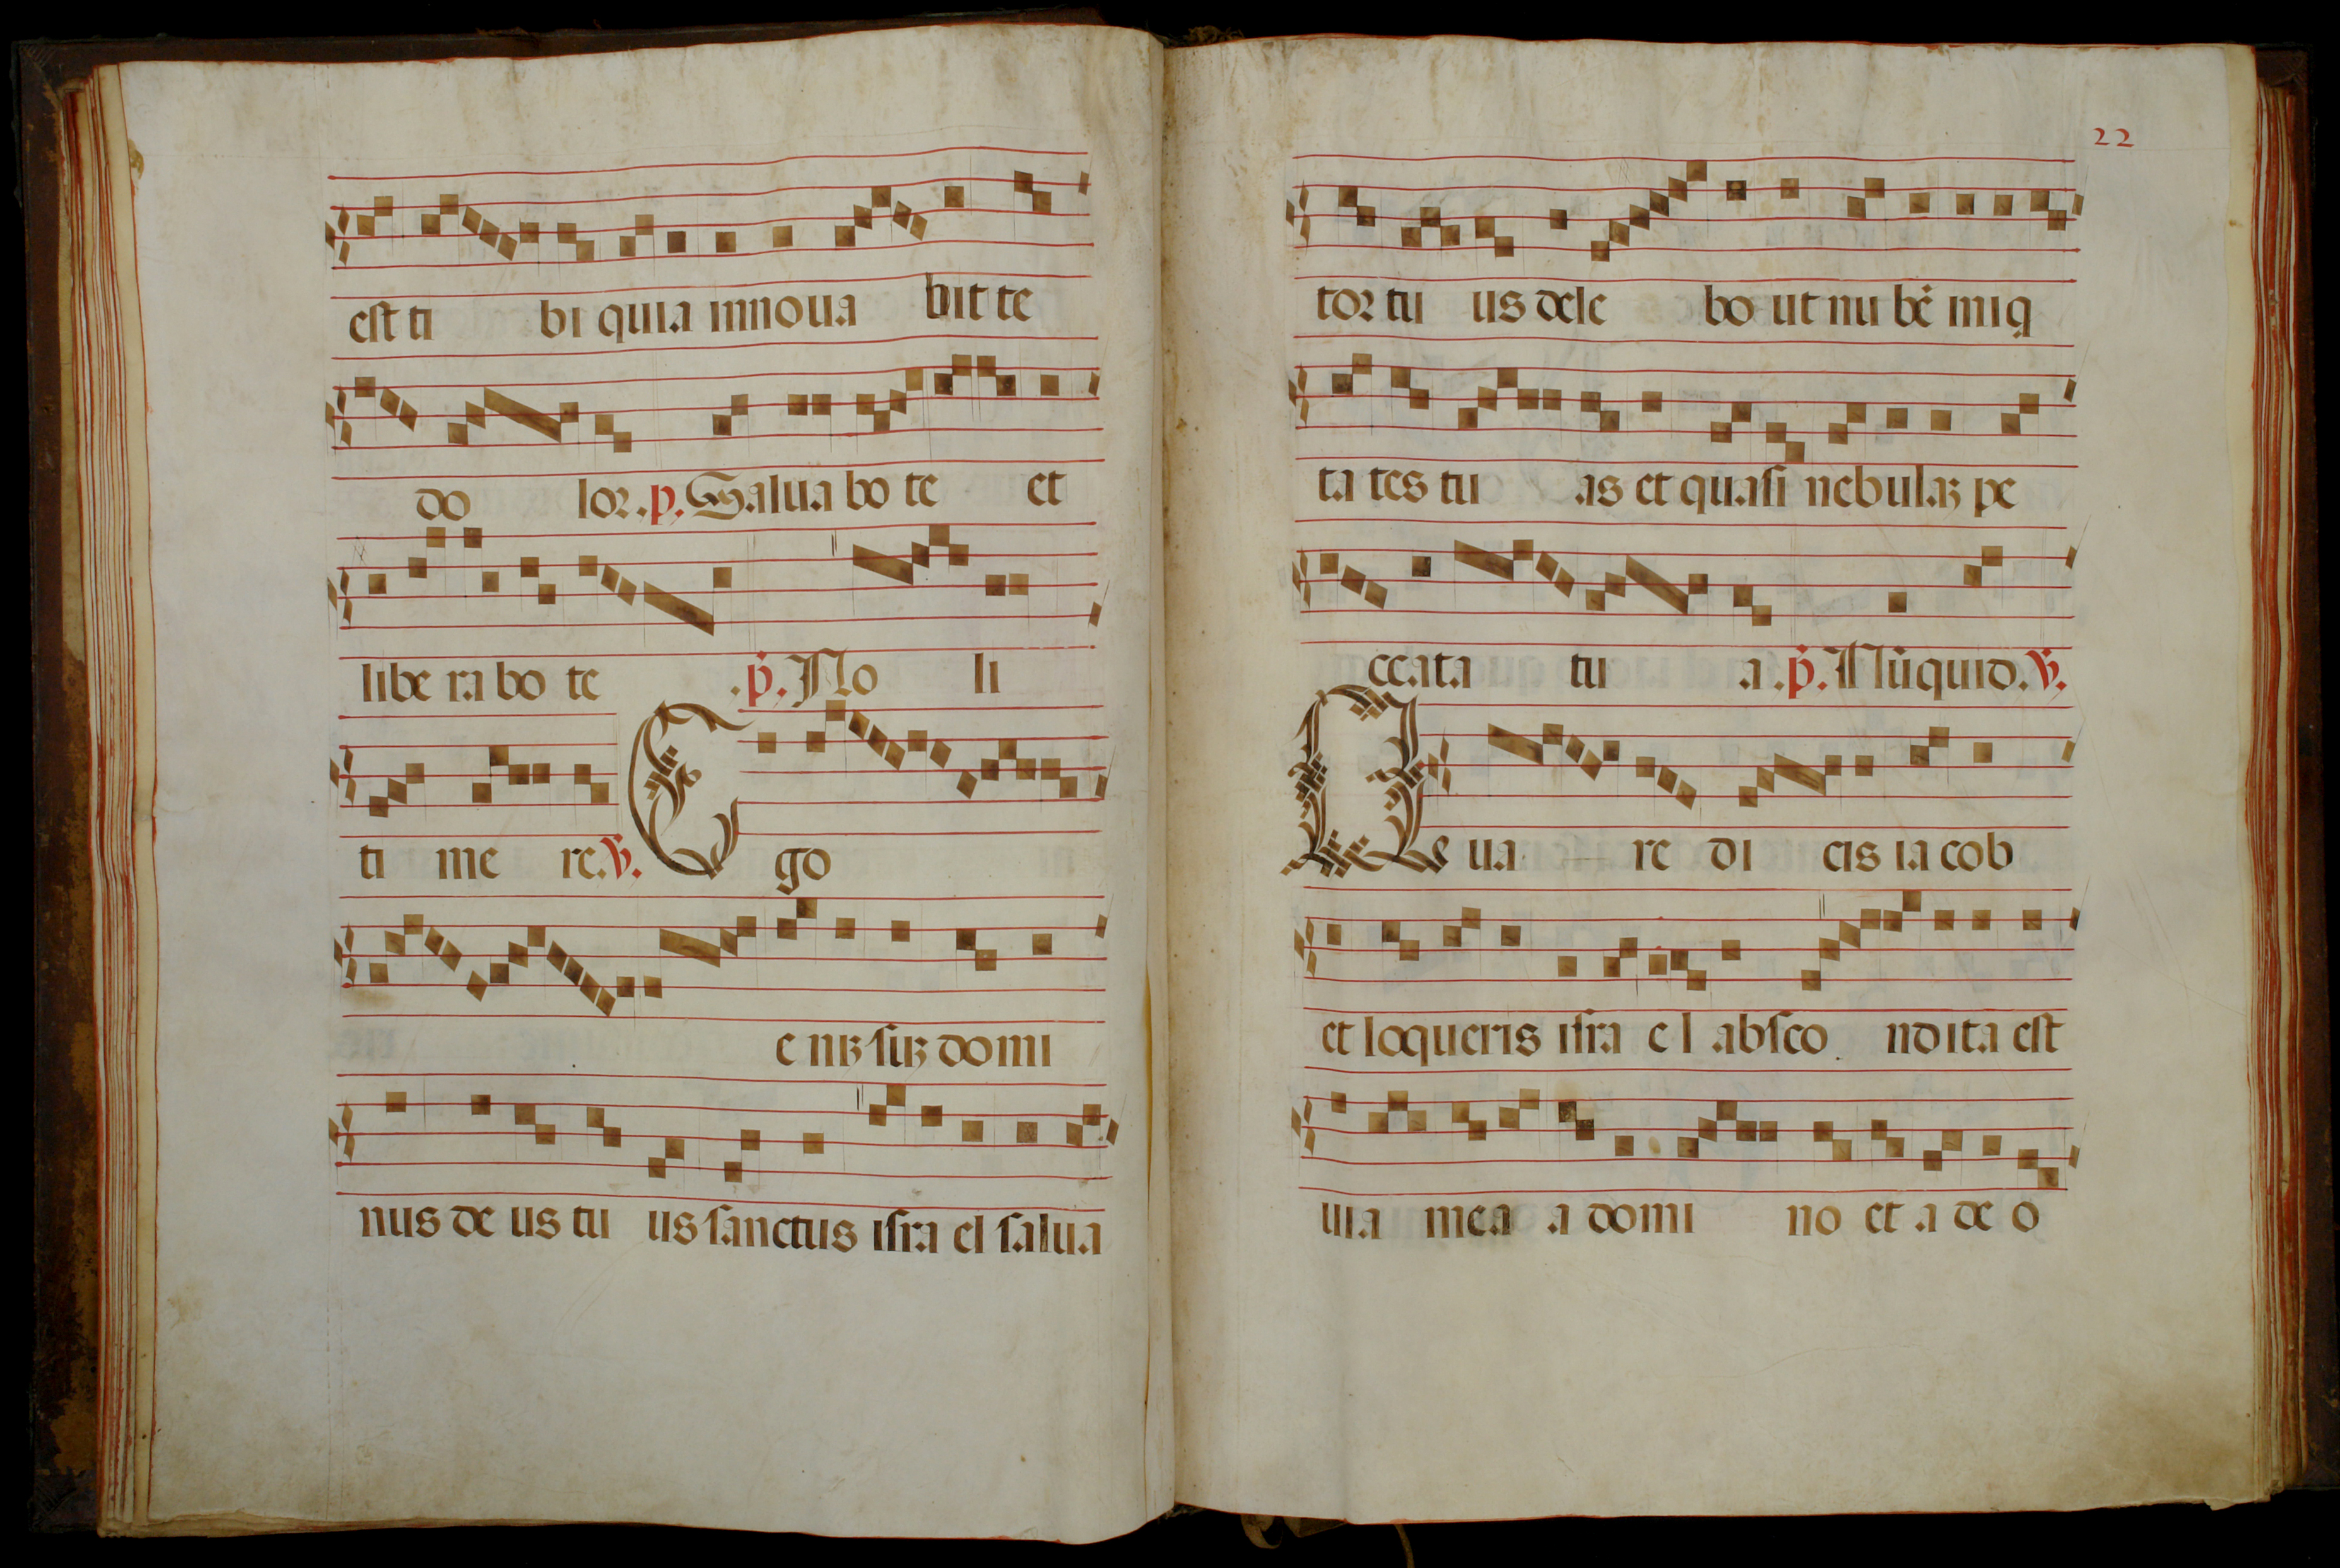 est ti bi quia innoua bit te
do lor. p. Salua bo te et
libe ra bo te . p̃. No li
ti me re. ℣. E go
e nꝫ suꝫ domi
nus de us tu us sanctus isra el salua
22
tor tu us dele bo ut nu bē iniq
ta tes tu as et quasi nebulaꝫ pe
ccata tu a. p̃. Nūquid. ℣.
Qua re di cis ia cob
et loqueris isra el absco ndita est
uia mea a domi no et a de o